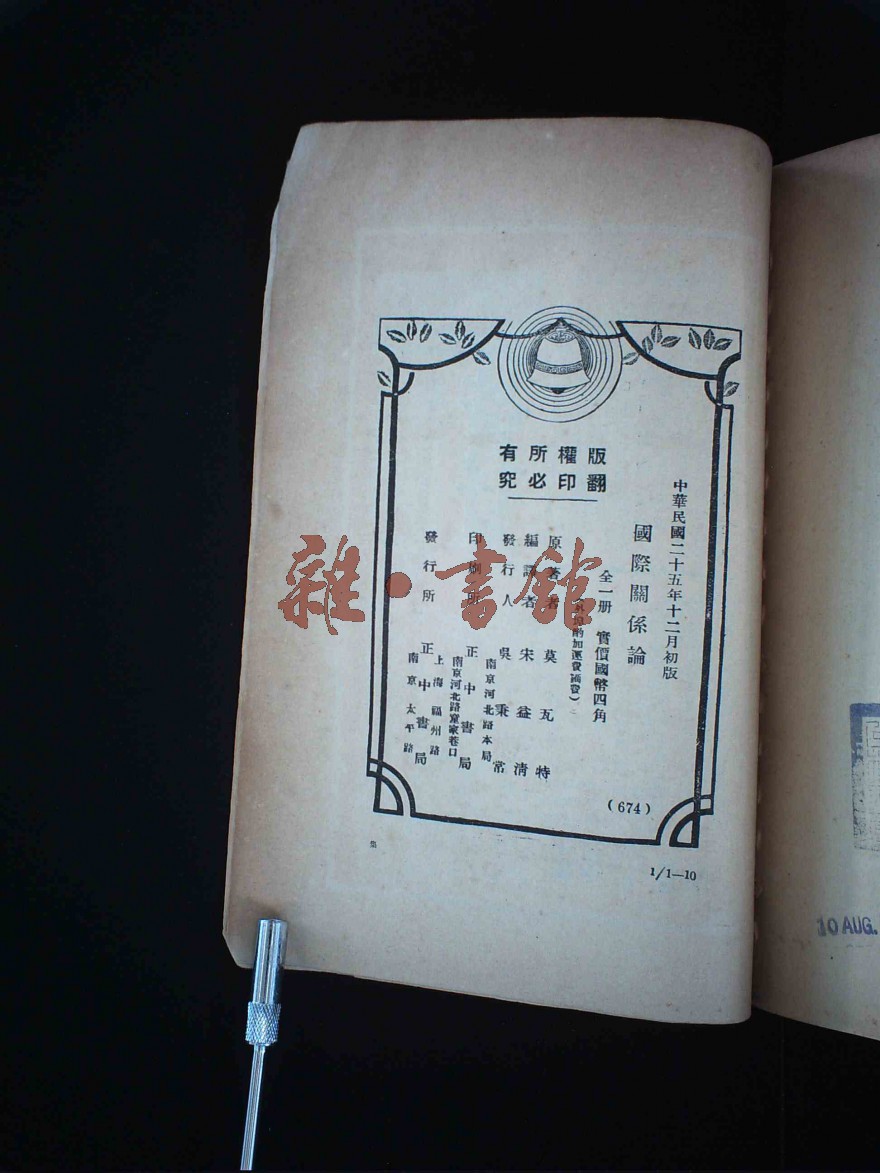 版權所有
翻印必究
中華民國二十五年十二月初版
國際關係論
全一册 實價國幣四角
酌加運費匯費)
原著者 莫瓦特
編譯者 宋益清
發行人 吳秉常
南京河北路本局
印刷所 正中書局
南京河北路童家巷口
發行所 正中書局
上海福州路
南京太平路
(674)
集
1/1—10
雜·書館
10 AUG.